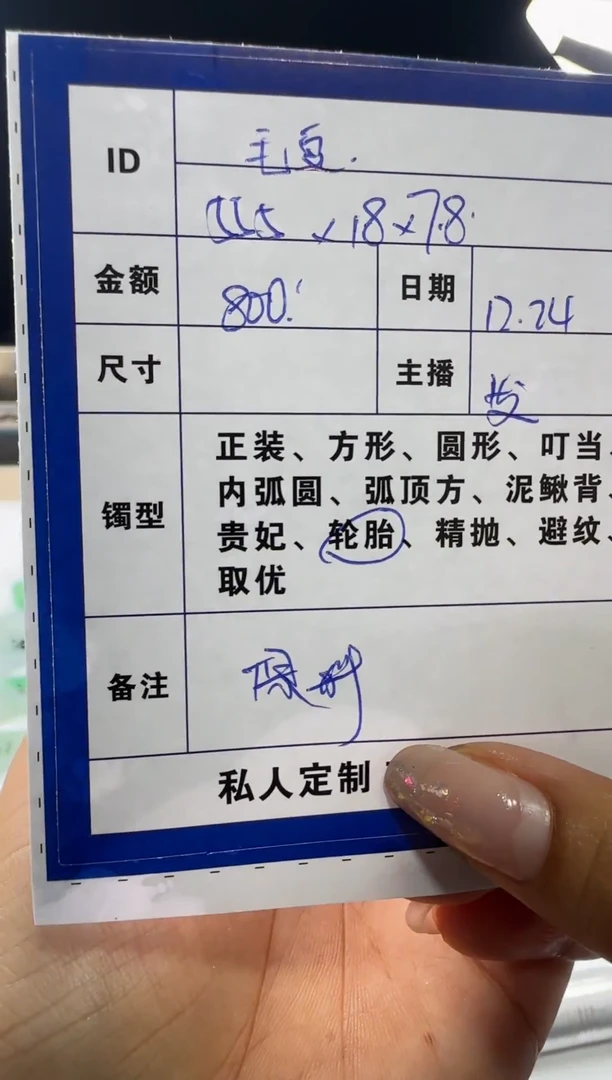 ID 毛豆.
555×18×7.8.
金额 800. 日期 12.24
尺寸 主播
镯型 正装、方形、圆形、叮当、
内弧圆、弧顶方、泥鳅背、
贵妃、轮胎、精抛、避纹、
取优
备注 保料
私人定制